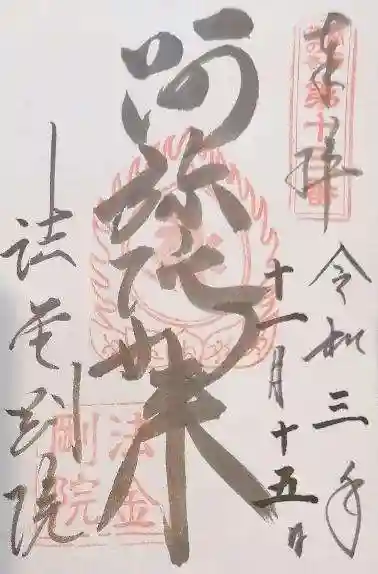 奉拝
第十
番
令和三年
十一月十五日
阿弥陀如来
法金剛院
法金
剛院